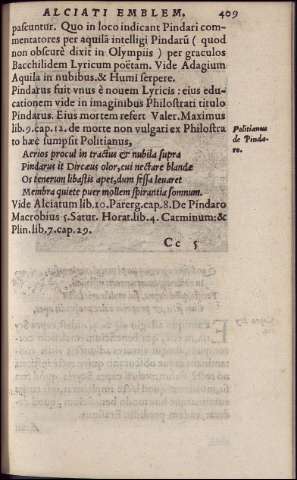 ALCIATI EMBLEM. 409
pascuntur. Quo in loco indicant Pindari com-
mentatores per aquilã intelligi Pindarũ ( quod
non obscurè dixit in Olympiis ) per graculos
Bacchilidem Lyricum poëtam. Vide Adagium
Aquila in nubibus. & Humi serpere.
Pindarus fuit vnus è nouem Lyricis : eius edu-
cationem vide in imaginibus Philostrati titulo
Pindarus. Eius mortem refert Valer. Maximus
lib. 9. cap. 12. de morte non vulgari ex Philostra
to hæc sumpsit Politianus,
Politianus
de Pinda-
ro.
Aerios procul in tractus & nubila supra
Pindarus it Dircæus olor, cui nectare blandæ
Os tenerum libastis apes, dum fessa leuaret
Membra quiete puer mollem spirantia somnum.
Vide Alciatum lib. 10. Parerg. cap. 8. De Pindaro
Macrobius 5. Satur. Horat. lib. 4. Carminum: &
Plin. lib. 7. cap. 29.
Cc 5